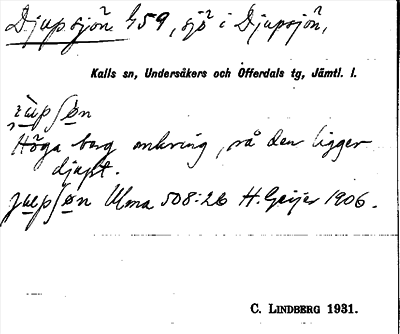 Djupsjön 459, sjö i Djupsjön,
Kalls sn, Undersåkers och Offerdals tg, Jämtl. l.
Höga berg omkring, så den ligger
djupt.
Ulma 508:26 H. Geijer 1906.
C. LINDBERG 1931.